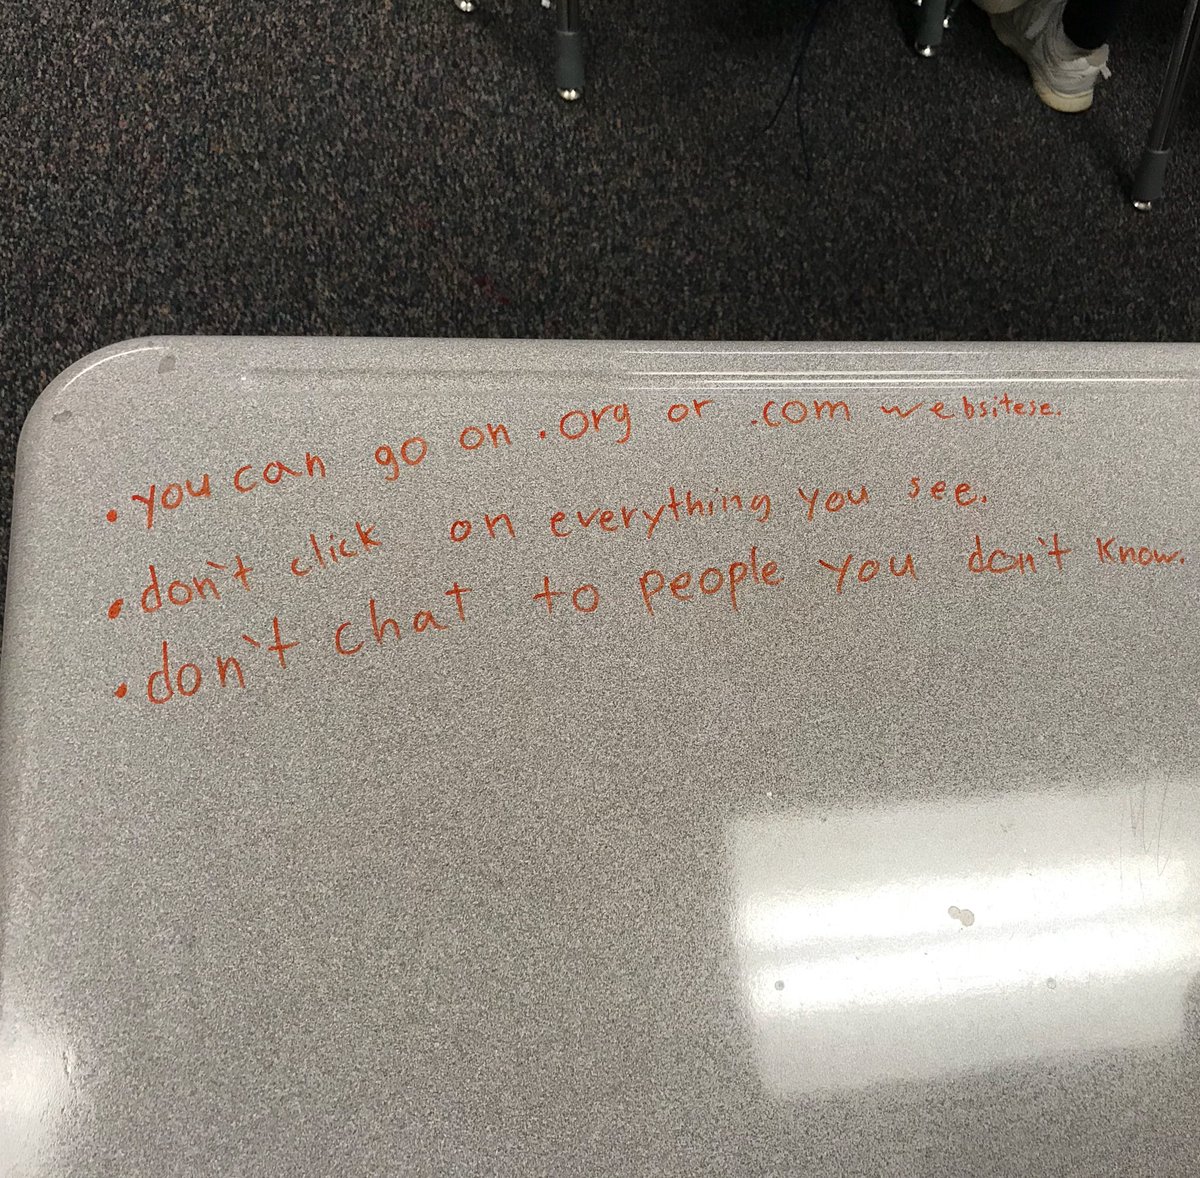 • you can go on .org or .com websitese.
• don't click on everything you see.
• don't chat to people you don't know.